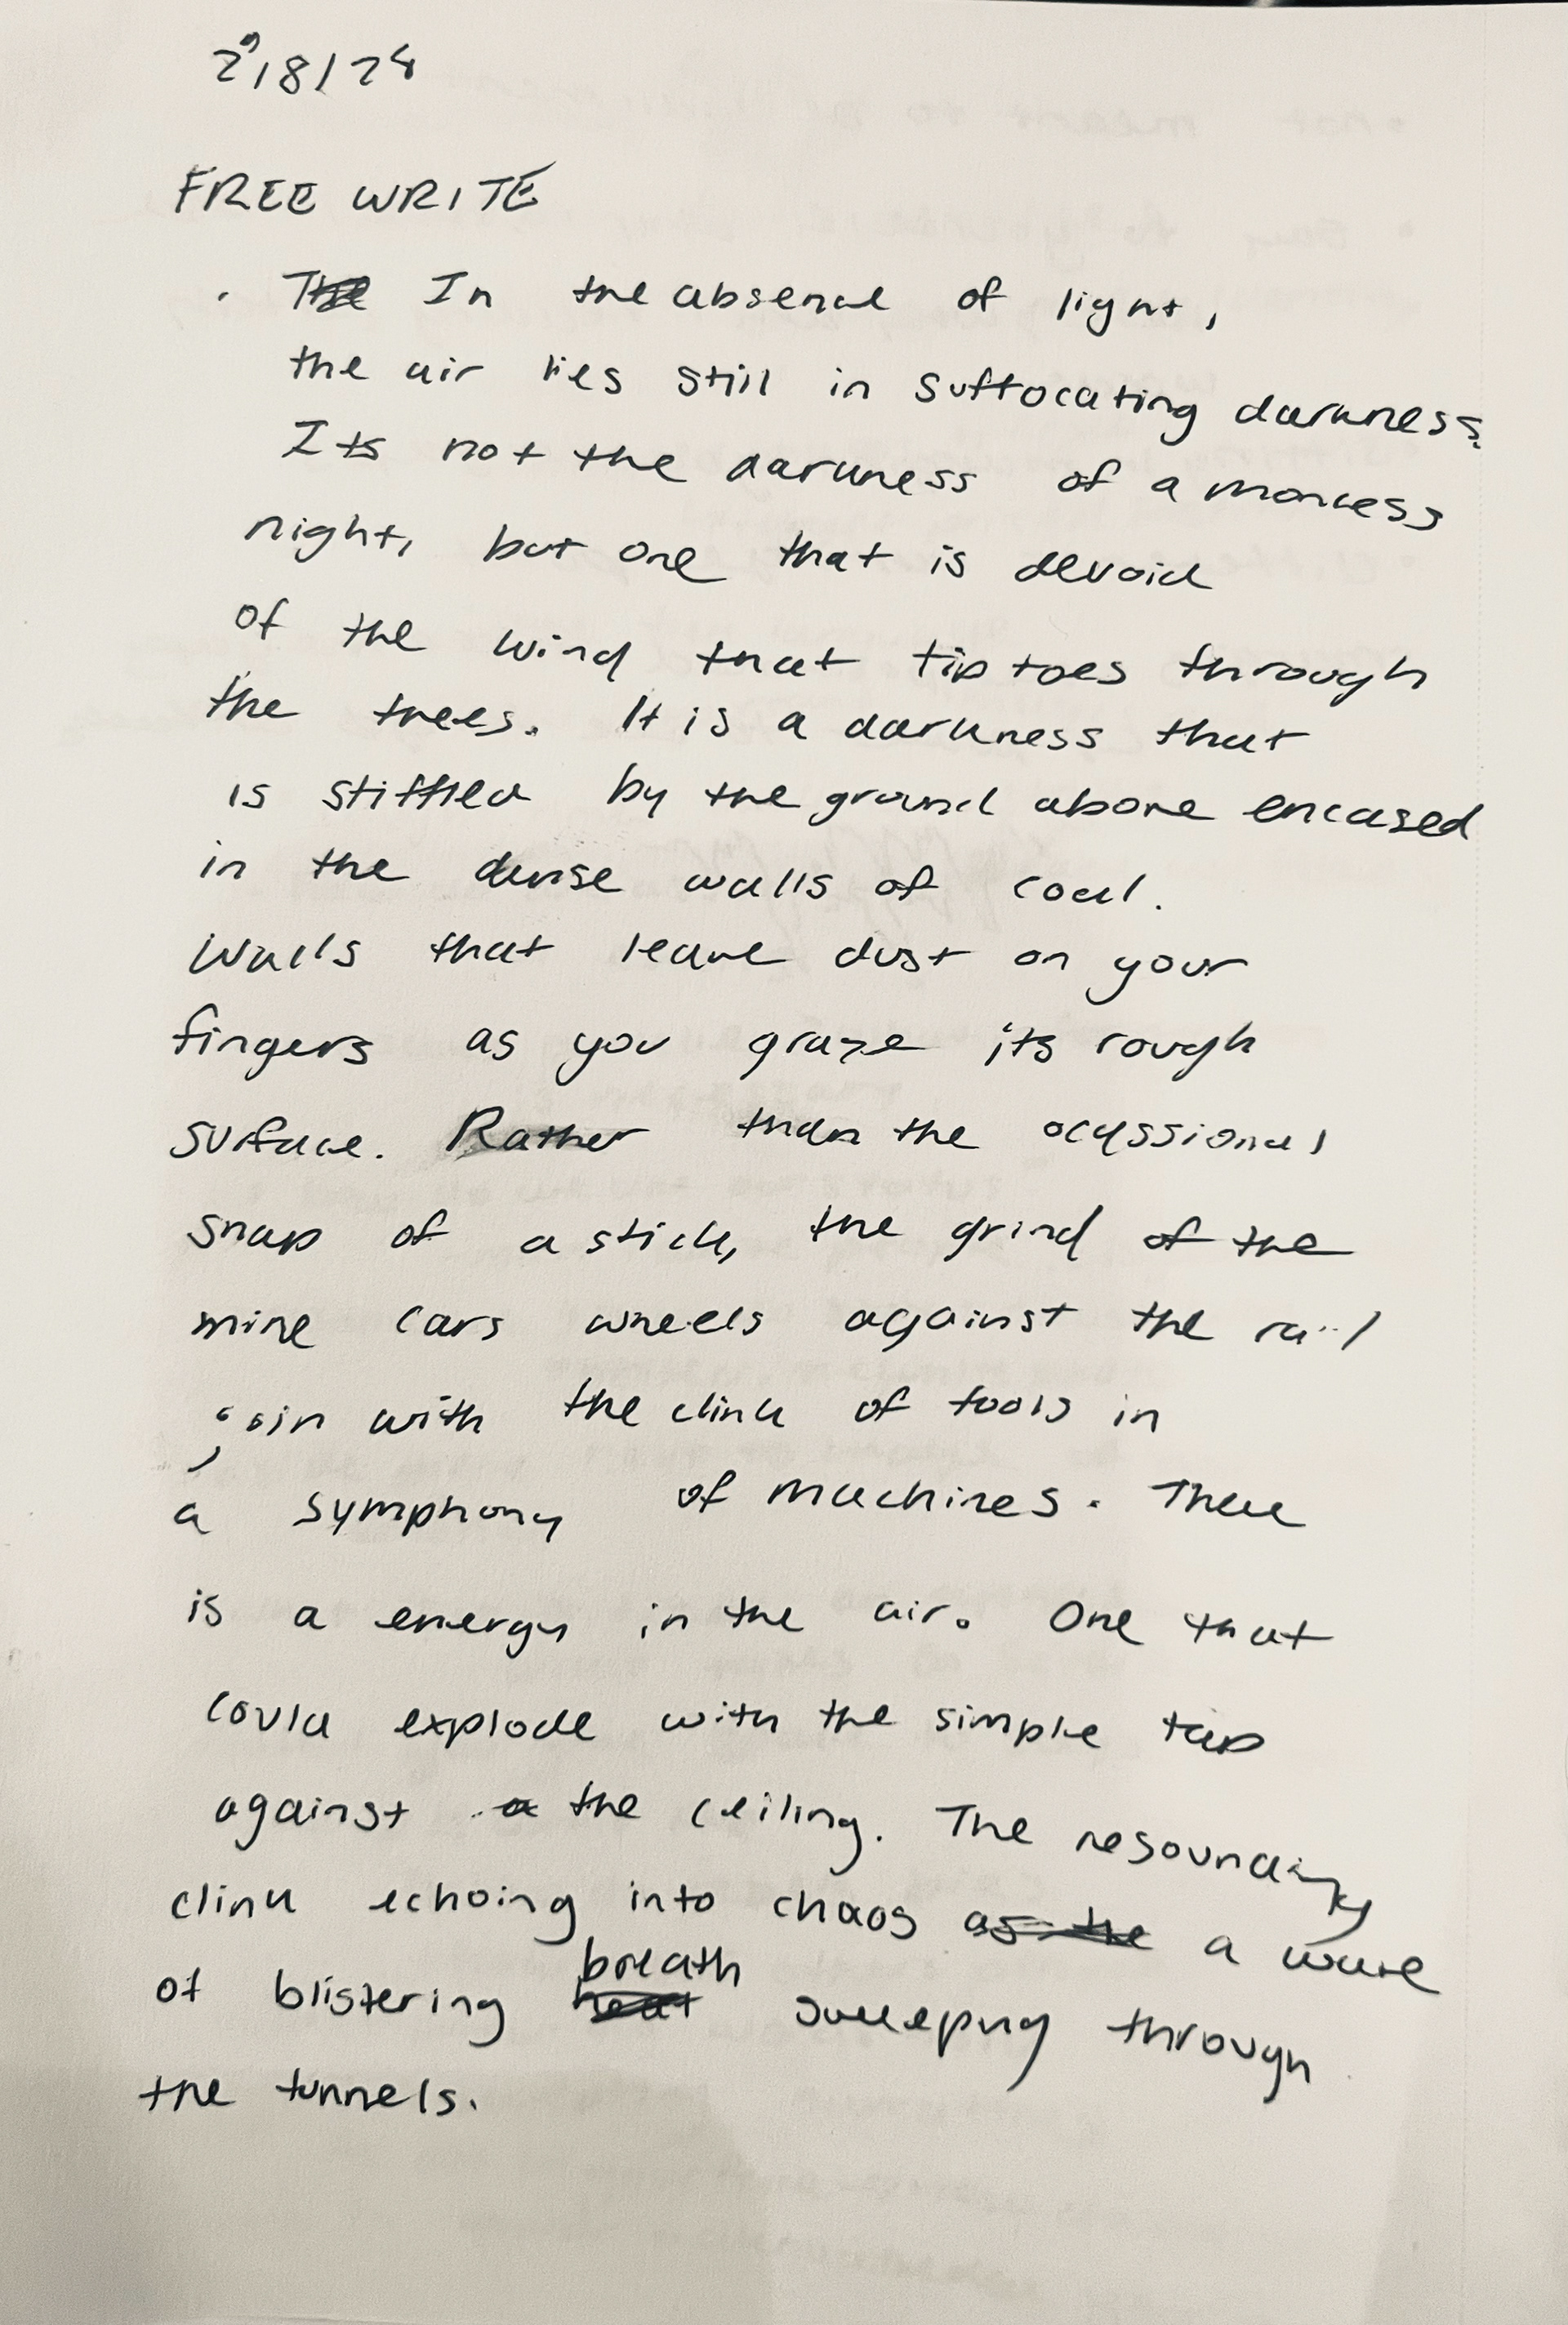 2/8/24
FREE WRITE
· The In the absence of light,
the air lies still in suffocating darkness.
Its not the darkness of a moonless
night, but one that is devoid
of the wind that tip toes through
the trees. It is a darkness that
is stiffled by the ground above encased
in the dense walls of coal.
Walls that leave dust on your
fingers as you graze its rough
surface. Rather than the ocassional
snap of a stick, the grind of the
mine cars wheels against the rail
join with the clink of tools in
a symphony of machines. There
is a energy in the air. One that
could explode with the simple tap
against a the ceiling. The resounding
clink echoing into chaos as the a wave
of blistering heat breath sweeping through
the tunnels.